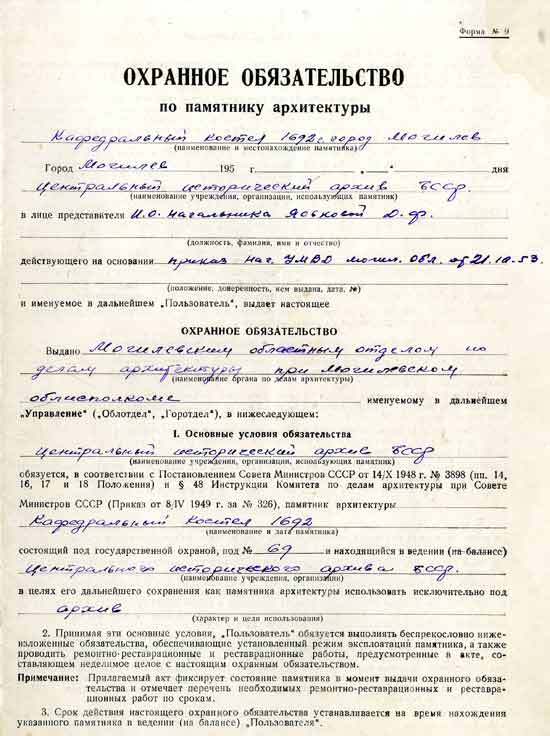 Форма № 9
ОХРАННОЕ ОБЯЗАТЕЛЬСТВО
по памятнику архитектуры
Кафедральный костел 1692 г. город Могилев
(наименование и местонахождение памятника)
Город Могилев 195 г. „ “ дня
Центральный исторический архив БССР.
(наименование учреждения, организации, использующих памятник)
в лице представителя И.О. начальника Яовковой Д.Ф.
(должность, фамилия, имя и отчество)
действующего на основании приказ нач. УМВД могил. обл. от 21.10.53.
(положение, доверенность, кем выдана, дата, №)
и именуемое в дальнейшем „Пользователь“, выдает настоящее
ОХРАННОЕ ОБЯЗАТЕЛЬСТВО
Выдано Могилевским областным отделом по
делам архитектуры при Могилевском
(наименование органа по делам архитектуры)
облисполкоме именуемому в дальнейшем
„Управление“ („Облотдел“, „Горотдел“), в нижеследующем:
I. Основные условия обязательства
Центральный исторический архив БССР
(наименование учреждения, организации, использующих памятник)
обязуется, в соответствии с Постановлением Совета Министров СССР от 14/X 1948 г. № 3898 (пп. 14,
16, 17 и 18 Положения) и § 48 Инструкции Комитета по делам архитектуры при Совете
Министров СССР (Приказ от 8/IV 1949 г. за № 326), памятник архитектуры
Кафедральный Костел 1692
(наименование и дата памятника)
состоящий под государственной охраной, под № 69 и находящийся в ведении (на балансе)
Центрального исторического архива БССР.
(наименование учреждения, организации)
в целях его дальнейшего сохранения как памятника архитектуры использовать исключительно под
архив
(характер и цели использования)
2. Принимая эти основные условия, „Пользователь“ обязуется выполнять беспрекословно ниже-
изложенные обязательства, обеспечивающие установленный режим эксплоатаций памятника, а также
проводить ремонтно-реставрационные и реставрационные работы, предусмотренные в акте, со-
ставляющем неделимое целое с настоящим охранным обязательством.
Примечание: Прилагаемый акт фиксирует состояние памятника в момент выдачи охранного обяза-
тельства и отмечает перечень необходимых ремонтно-реставрационных и реставра-
ционных работ по срокам.
3. Срок действия настоящего охранного обязательства устанавливается на время нахождения
указанного памятника в ведении (на балансе) „Пользователя“.